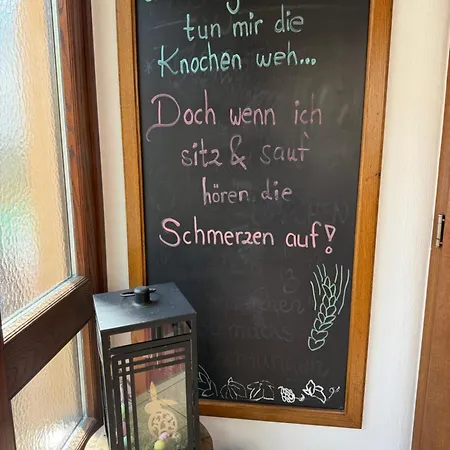 tun mir die
Knochen weh...
Doch wenn ich
sitz & sauf
hören die
Schmerzen auf!